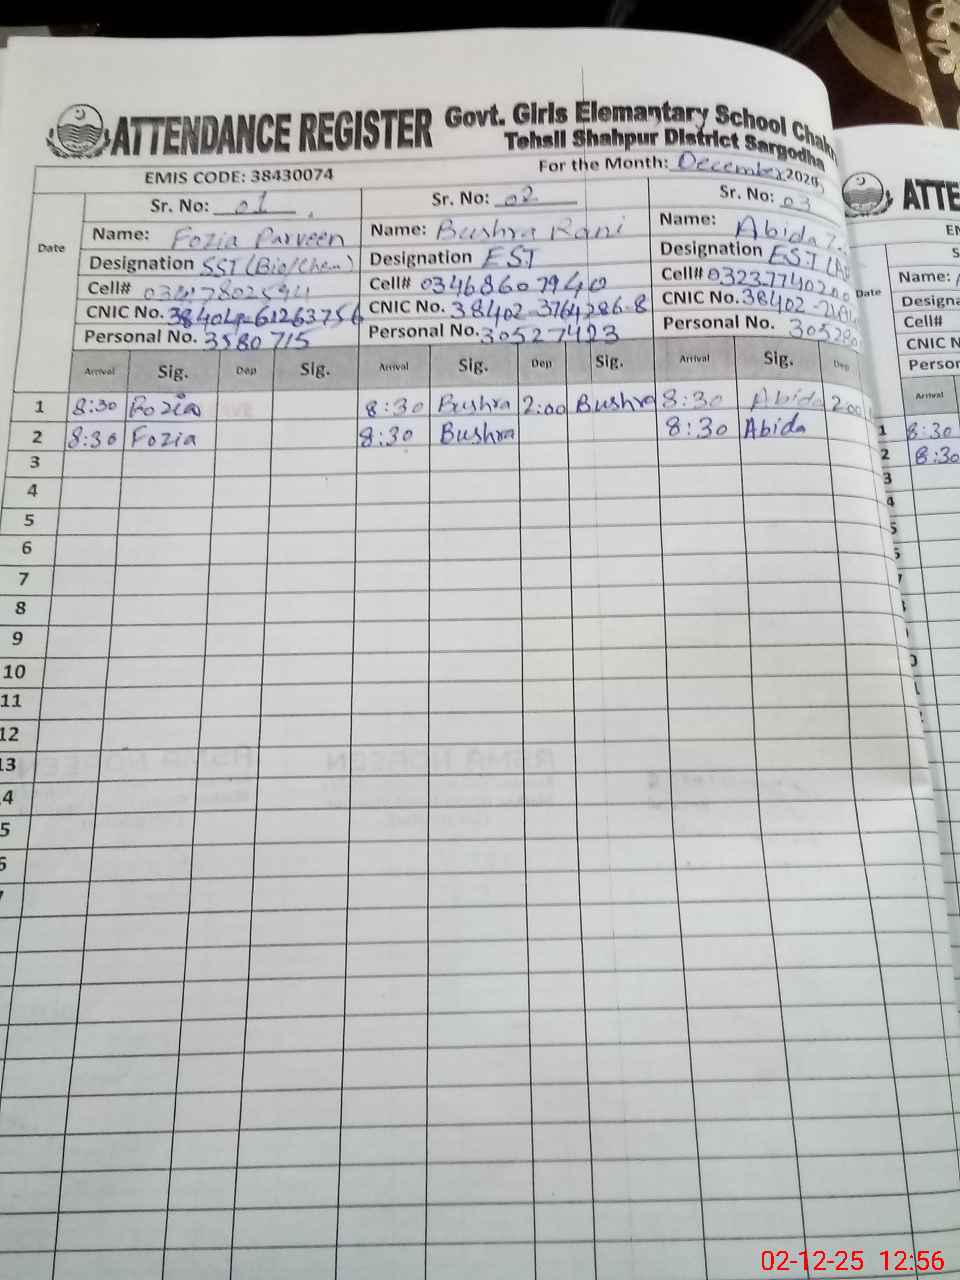 ATTENDANCE REGISTER Govt. Girls Elemantary School
Tehsil Shahpur District Sargodha
EMIS CODE: 38430074 For the Month: December
Date
Sr. No: 01
Name: Fozia Parveen
Designation SST (Bio/Chem)
Cell# 03417802594
CNIC No.
Personal No. 3580715
Sr. No: 02
Name: Bushra Rani
Designation EST
Cell# 03468607940
CNIC No. 38402-3764286-8
Personal No. 30527423
Sr. No: 03
Name: Abida
Designation EST
Cell# 03237740200
CNIC No. 38402
Personal No. 305280
Arrival Sig. Dep Sig. Arrival Sig. Dep Sig. Arrival Sig. Dep
1 8:30 Fozia 8:30 Bushra 2:00 Bushra 8:30 Abida 2:00
2 8:30 Fozia 8:30 Bushra 8:30 Abida
3
4
5
6
7
8
9
10
11
12
13
Date
Name:
Cell#
Arrival
1 8:30
2 8:30
3
4
02-12-25 12:56